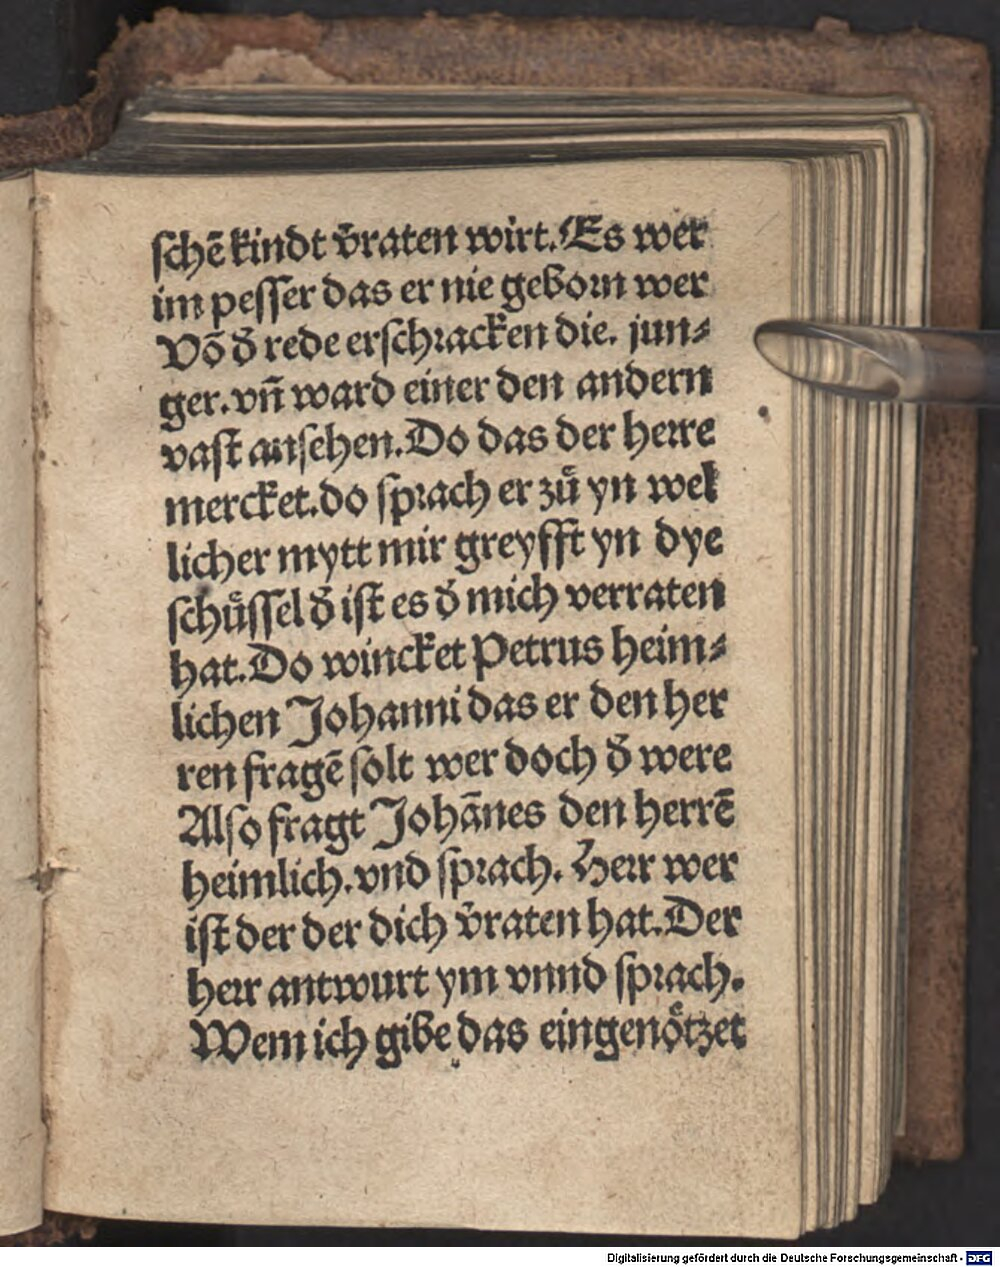 schē kindt v̄raten wirt. Es wer
im pesser das er nie geborn wer
Vō d̄ rede erschracken die. jun⸗
ger. vn̄ ward einer den andern
vast ansehen. Do das der herre
mercket. do sprach er zuͦ yn wel
licher mytt mir greyfft yn dye
schuͤssel d̄ ist es d̄ mich verraten
hat. Do wincket Petrus heim⸗
lichen Johanni das er den her
ren fragē solt wer doch d̄ were
Also fragt Johānes den herrē
heimlich. vnd sprach. Herr wer
ist der der dich v̄raten hat. Der
herr antwurt ym vnnd sprach.
Wem ich gibe das eingenoͤtzet
Digitalisierung gefördert durch die Deutsche Forschungsgemeinschaft - DFG